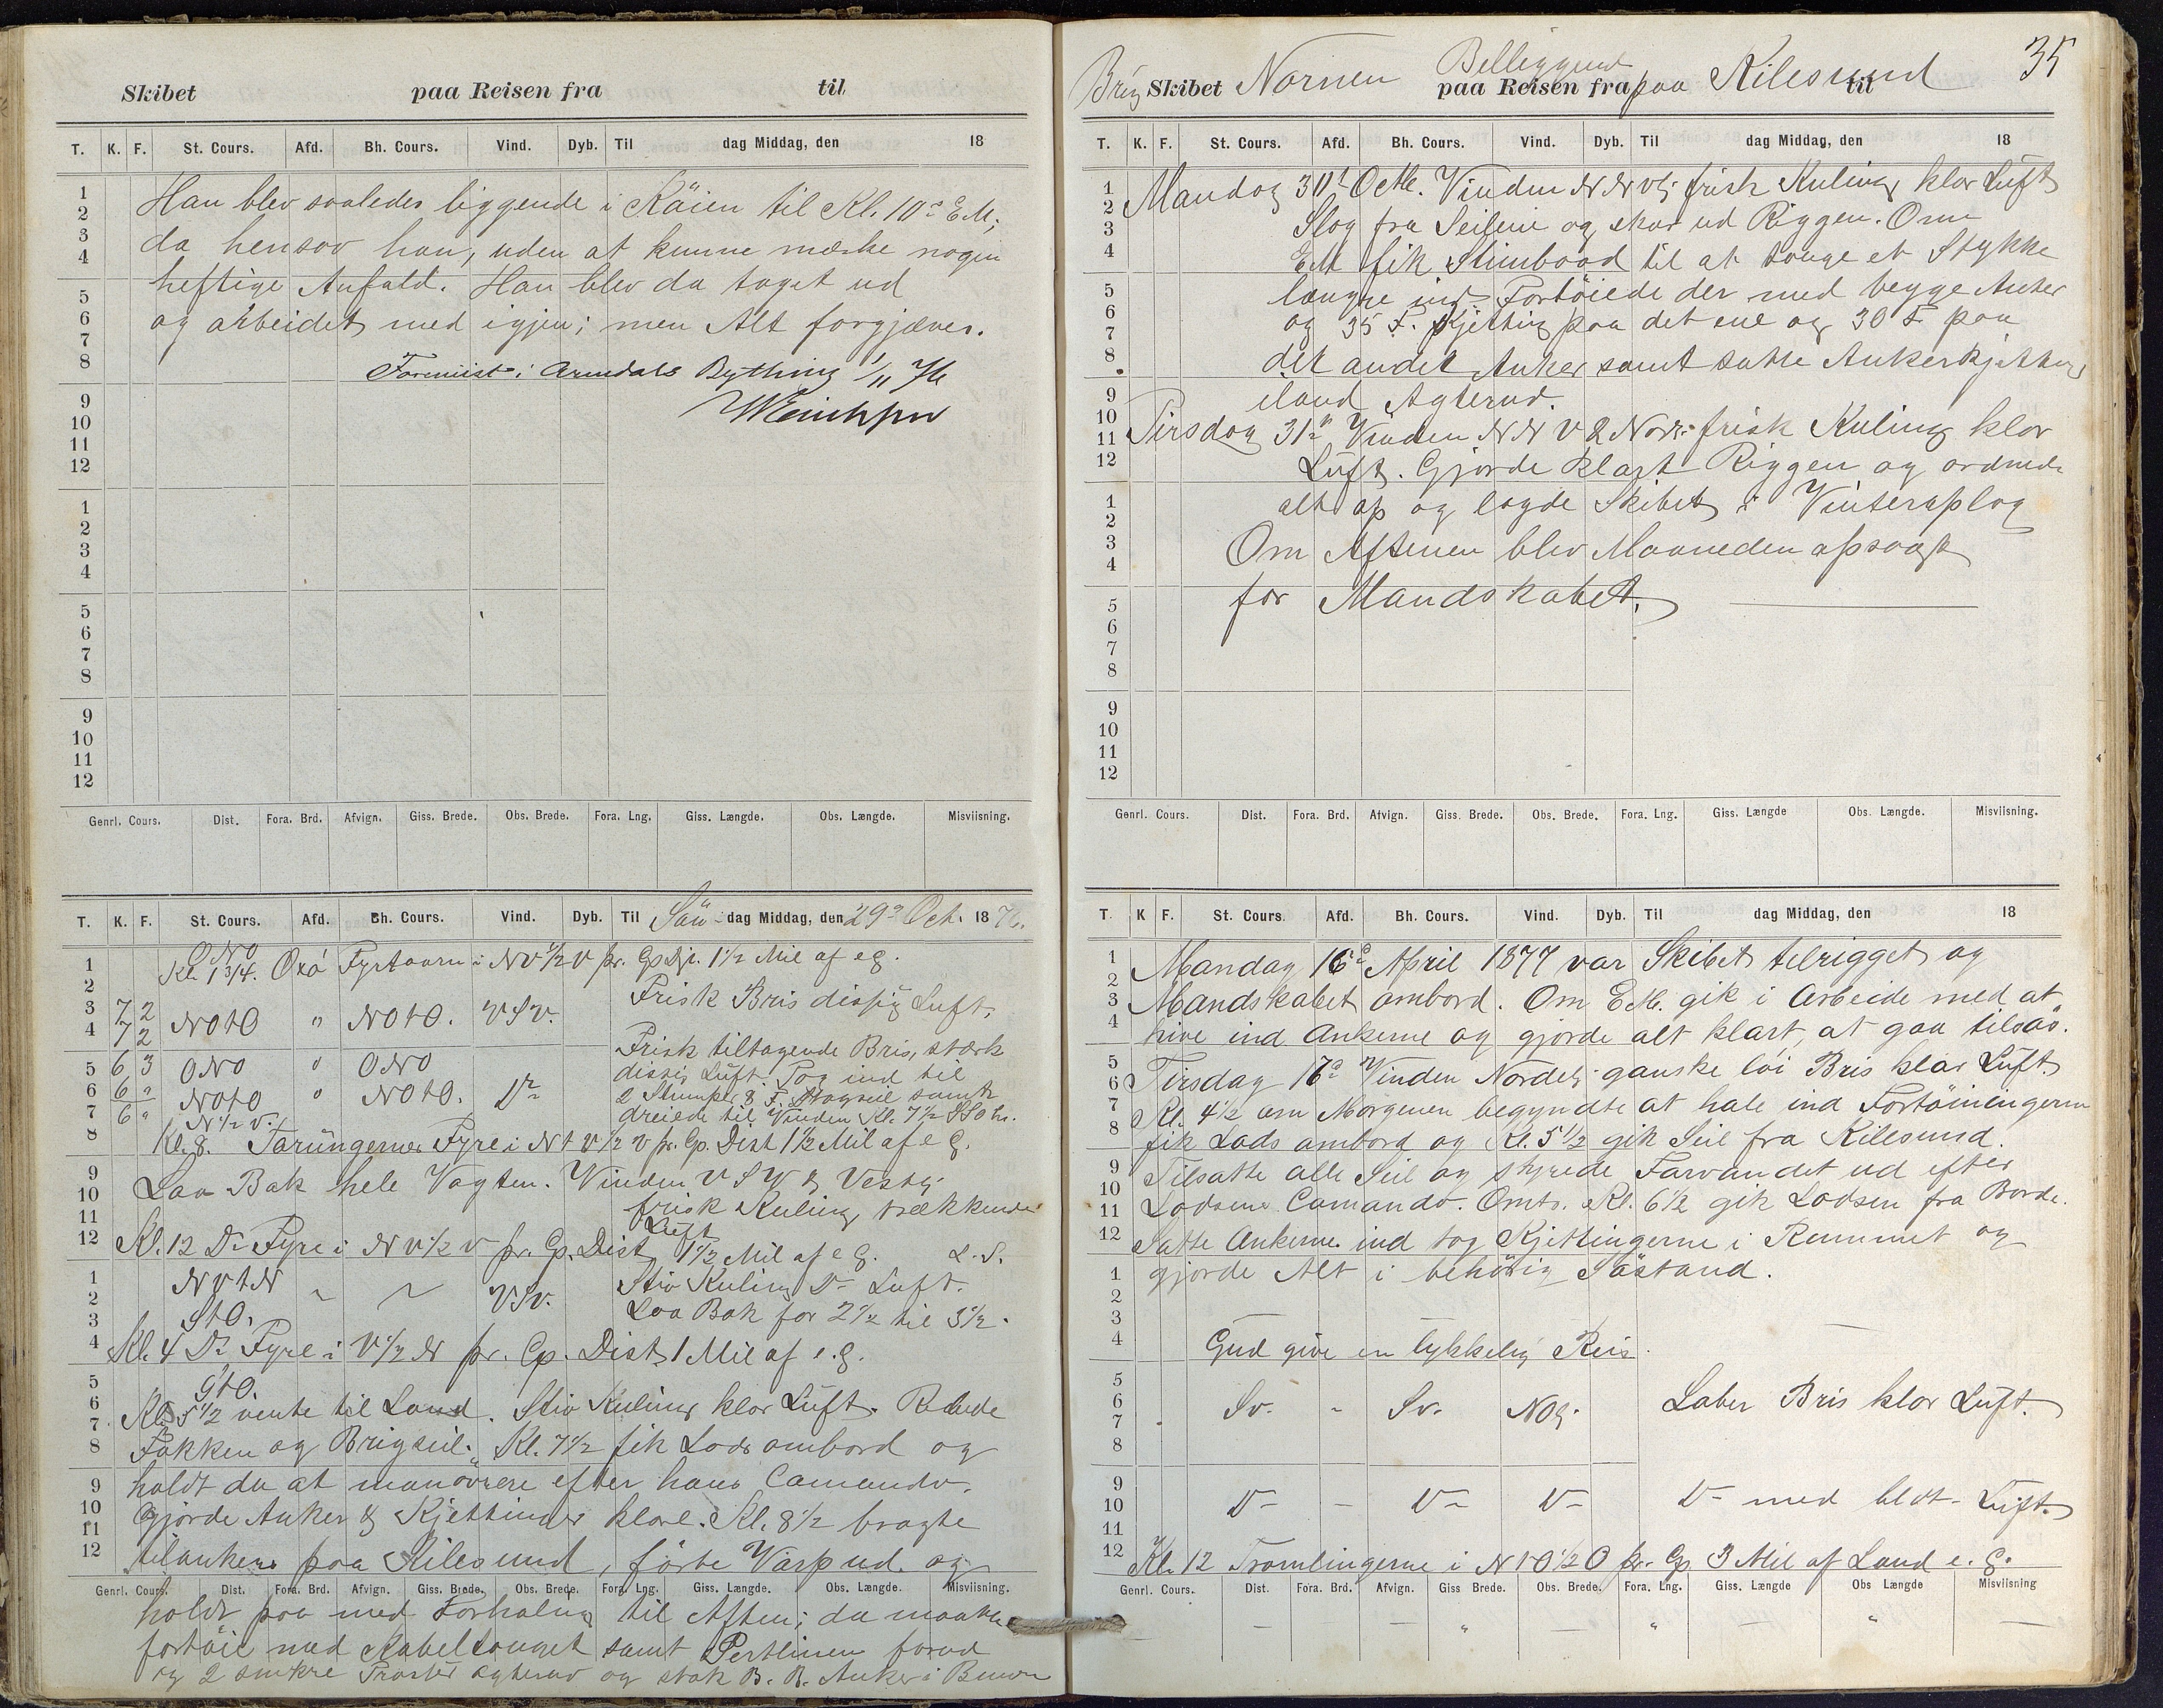 Skibet paa Reisen fra til
T. K. F. St. Cours. Afd. Bh. Cours. Vind. Dyb. Til dag Middag, den 18
Han blev saaledes liggende i Köien til Kl. 10 EM,
da hensov han, uden at kunne mærke nogen
heftige Anfald. Han blev da taget ud
og arbeidet med igjen; men Alt forgjæves.
i Arendals Bything 1/11 76
1
2
3
4
5
6
7
8
9
10
11
12
1
2
3
4
5
6
7
8
9
10
11
12
Genrl. Cours. Dist. Fora. Brd. Afvign. Giss. Brede. Obs. Brede. Fora. Lng. Giss. Længde. Obs. Længde. Misviisning.
T. K. F. St. Cours. Afd. Bh. Cours. Vind. Dyb. Til Sön dag Middag, den 29 Oct. 1876.
ONO
Kl. 1 3/4. Oxö Fyrtaarn i NV 1/2 V pr. Cp. 1 1/2 Mil af e g.
Frisk Bris disig Luft.
3 7 2
4 7 2 NOtO " NOtO. VSV.
Frisk tiltagende Bris, stærk
5 6 3 ONO " ONO
disig Luft. Tog ind til
6 6 " NOtO " NOtO. Do
2 Stumper & F. Stagseil samt
7 6 " N 1/2 V.
dreiede til Vinden Kl. 7 1/2
8 Kl. 8. Torungernes Fyre i NtV 1/2 V pr. Cp. Dist 1 1/2 Mil af e g.
Laa Bak hele Vagten. Vinden VSV & Vestlig
frisk Kuling trækkende
Luft
Kl. 12 Do Fyre i NV 1/2 V pr. Cp. Dist 1 1/2 Mil af e g. L. S.
NVtN VSV. Stiv Kuling Do Luft.
StO. Laa Bak for 2 1/2 til 3 1/2.
Kl. 4 Do Fyre i V 1/2 N pr. Cp. Dist 1 Mil af e. g.
Kl. 5 1/2 vente til Land. Stiv Kuling klar Luft.
Fokken og Brigseil. Kl. 7 1/2 fik Lods ombord og
holdt da at manövrere efter hans Comando.
Gjorde Anker & Kjettinger klare. Kl. 8 1/2 bragte
tilankers paa Kilesund, förte Varp ud og
Genrl. Cours. Dist. Fora. Brd. Afvign. Giss. Brede. Obs. Brede. Fora. Lng. Giss. Længde. Obs. Længde. Misviisning.
holdt paa med Forhaling til Aften; da maatte
fortöie med Kabeltouget samt Pertlinen forud
og 2 smekre Trosser agterud og stak B. B. Anker i Bunden
Brig Skibet Nornen Beliggende paa Reisen fra paa Kilesund til 35
T. K. F. St. Cours. Afd. Bh. Cours. Vind. Dyb. Til dag Middag, den 18
Mandag 30te Octbr. Vinden NNVlig frisk Kuling klar Luft
Slog fra Seilene og skar ud Riggen. Om
EM fik Stimbaad til at touge et Stykke
længre ind. Fortöiede der med begge Anker
og 35 F. Kjetting paa det ene og 30 F. paa
det andet Anker samt satte Ankerkjetting
iland Agterud.
Tirsdag 31te Vinden NNV & Nordl. frisk Kuling klar
Luft. Gjorde klart Riggen og ordnede
alt op og lagde Skibet i Vinteroplag
Om Aftenen blev Maaneden opsagt
for Mandskabet.
5
6
7
8
9
10
11
12
Genrl. Cours. Dist. Fora. Brd. Afvign. Giss. Brede. Obs. Brede. Fora. Lng. Giss. Længde Obs. Længde. Misviisning.
T. K F. St. Cours. Afd. Bh. Cours. Vind. Dyb. Til dag Middag, den 18
Mandag 16de April 1877 var Skibet tilrigget og
Mandskabet ombord. Om EM. gik i Arbeide med at
hive ind Ankerne og gjorde alt klart, at gaa tilsøs.
Tirsdag 17de Vinden Nordlig ganske löi Bris klar Luft.
Kl. 4 1/2 om Morgenen begyndte at hale ind Fortöiningerne
fik Lods ombord og Kl. 5 1/2 gik Seil fra Kilesund.
Tilsatte alle Seil og styrede Farvandet ud efter
Lodsens Comando. Omtr. Kl. 6 1/2 gik Lodsen fra Borde.
Satte Ankerne ind tog Kjettingerne i Rummet og
gjorde Alt i behörig Söstand.
Gud give en lykkelig Reis.
Sv. - Sv. NOlig. Laber Bris klar Luft.
Do - Do Do Do med Luft.
Kl. 12 Tromlingerne i NtO 1/2 O pr. Cp 3 Mil af Land e. g.
Genrl. Cours. Dist. Fora. Brd. Afvign. Giss Brede. Obs. Brede. Fora. Lng. Giss. Længde Obs Længde Misviisning